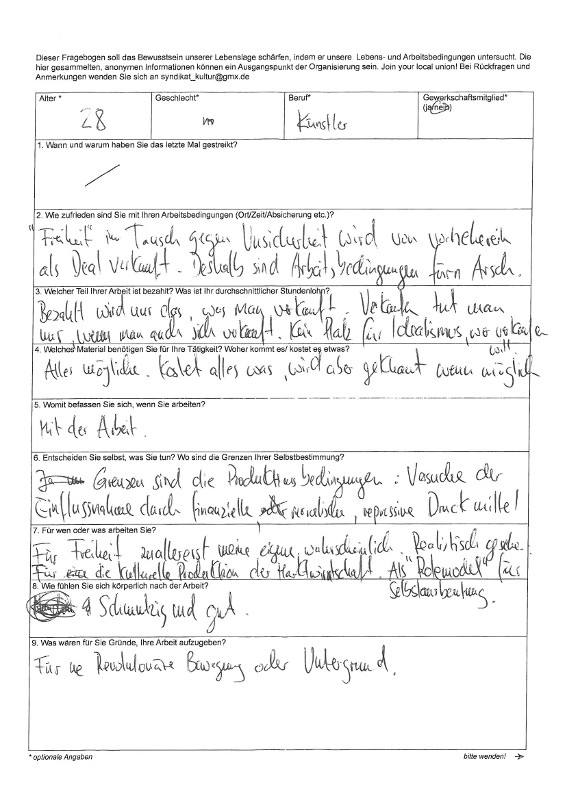 Dieser Fragebogen soll das Bewusstsein unserer Lebenslage schärfen, indem er unsere Lebens- und Arbeitsbedingungen untersucht. Die
hier gesammelten, anonymen Informationen können ein Ausgangspunkt der Organisierung sein. Join your local union! Bei Rückfragen und
Anmerkungen wenden Sie sich an syndikat_kultur@gmx.de
Alter * Geschlecht* Beruf* Gewerkschaftsmitglied*
(ja/nein)
28 m Künstler
1. Wann und warum haben Sie das letzte Mal gestreikt?
2. Wie zufrieden sind Sie mit Ihren Arbeitsbedingungen (Ort/Zeit/Absicherung etc.)?
"Freiheit" im Tausch gegen Unsicherheit wird von vorneherein
als Deal verkauft. Deshalb sind Arbeitsbedingungen fürn Arsch.
3. Welcher Teil Ihrer Arbeit ist bezahlt? Was ist Ihr durchschnittlicher Stundenlohn?
Bezahlt wird nur das, was man verkauft. Verkaufen tut man
nur, wenn man auch sich verkauft. Kein Platz für Idealismus, wer verkaufen
will
4. Welches Material benötigen Sie für Ihre Tätigkeit? Woher kommt es/ kostet es etwas?
Alles mögliche. Kostet alles was, wird aber geklaut wenn möglich
5. Womit befassen Sie sich, wenn Sie arbeiten?
Mit der Arbeit.
6. Entscheiden Sie selbst, was Sie tun? Wo sind die Grenzen Ihrer Selbstbestimmung?
Grenzen sind die Produktionsbedingungen: Versuche der
Einflussnahme durch finanzielle oder moralische, repressive Druckmittel
7. Für wen oder was arbeiten Sie?
Für Freiheit zuallererst meine eigene, wahrscheinlich. Realistisch gesehen
Für die kulturelle Produktion der Marktwirtschaft. Als "Rolemodel" für
Selbstausbeutung.
8. Wie fühlen Sie sich körperlich nach der Arbeit?
Schmutzig und gut.
9. Was wären für Sie Gründe, Ihre Arbeit aufzugeben?
Für ne Revolutionäre Bewegung oder Untergrund.
* optionale Angaben bitte wenden! →